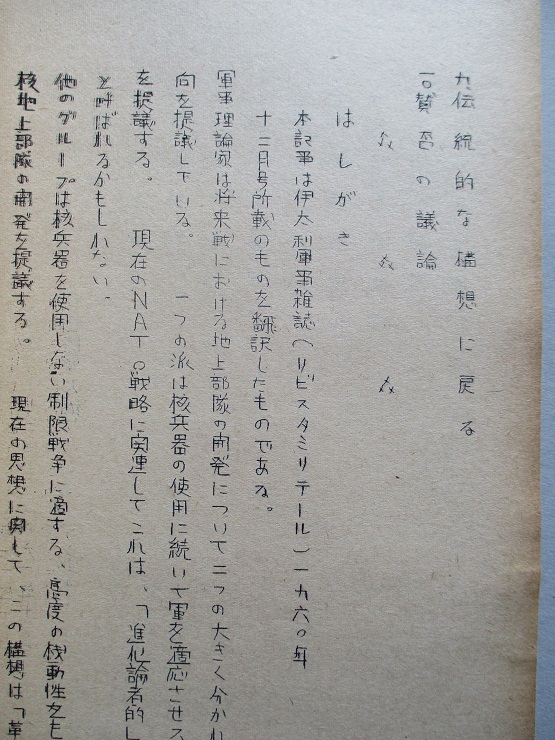 九、伝統的な構想に戻る
一〇、賛否の議論
はしがき
本記事は伊太利軍事雑誌（リビスタミリテール）一九六〇年
十二月号所載のものを翻訳したものである。
軍事理論家は将来戦における地上部隊の開発について二つの大きく分かれ
向を提議している。 一つの派は核兵器の使用に続いて軍を適応させる
を提議する。 現在のNATOの戦略に関連してこれは、「進化論者的」
と呼ばれるかもしれない。
他のグループは核兵器を使用しない制限戦争に適する、高度の機動性をも
核地上部隊の開発を提議する。 現在の思想に関して、この構想は「革